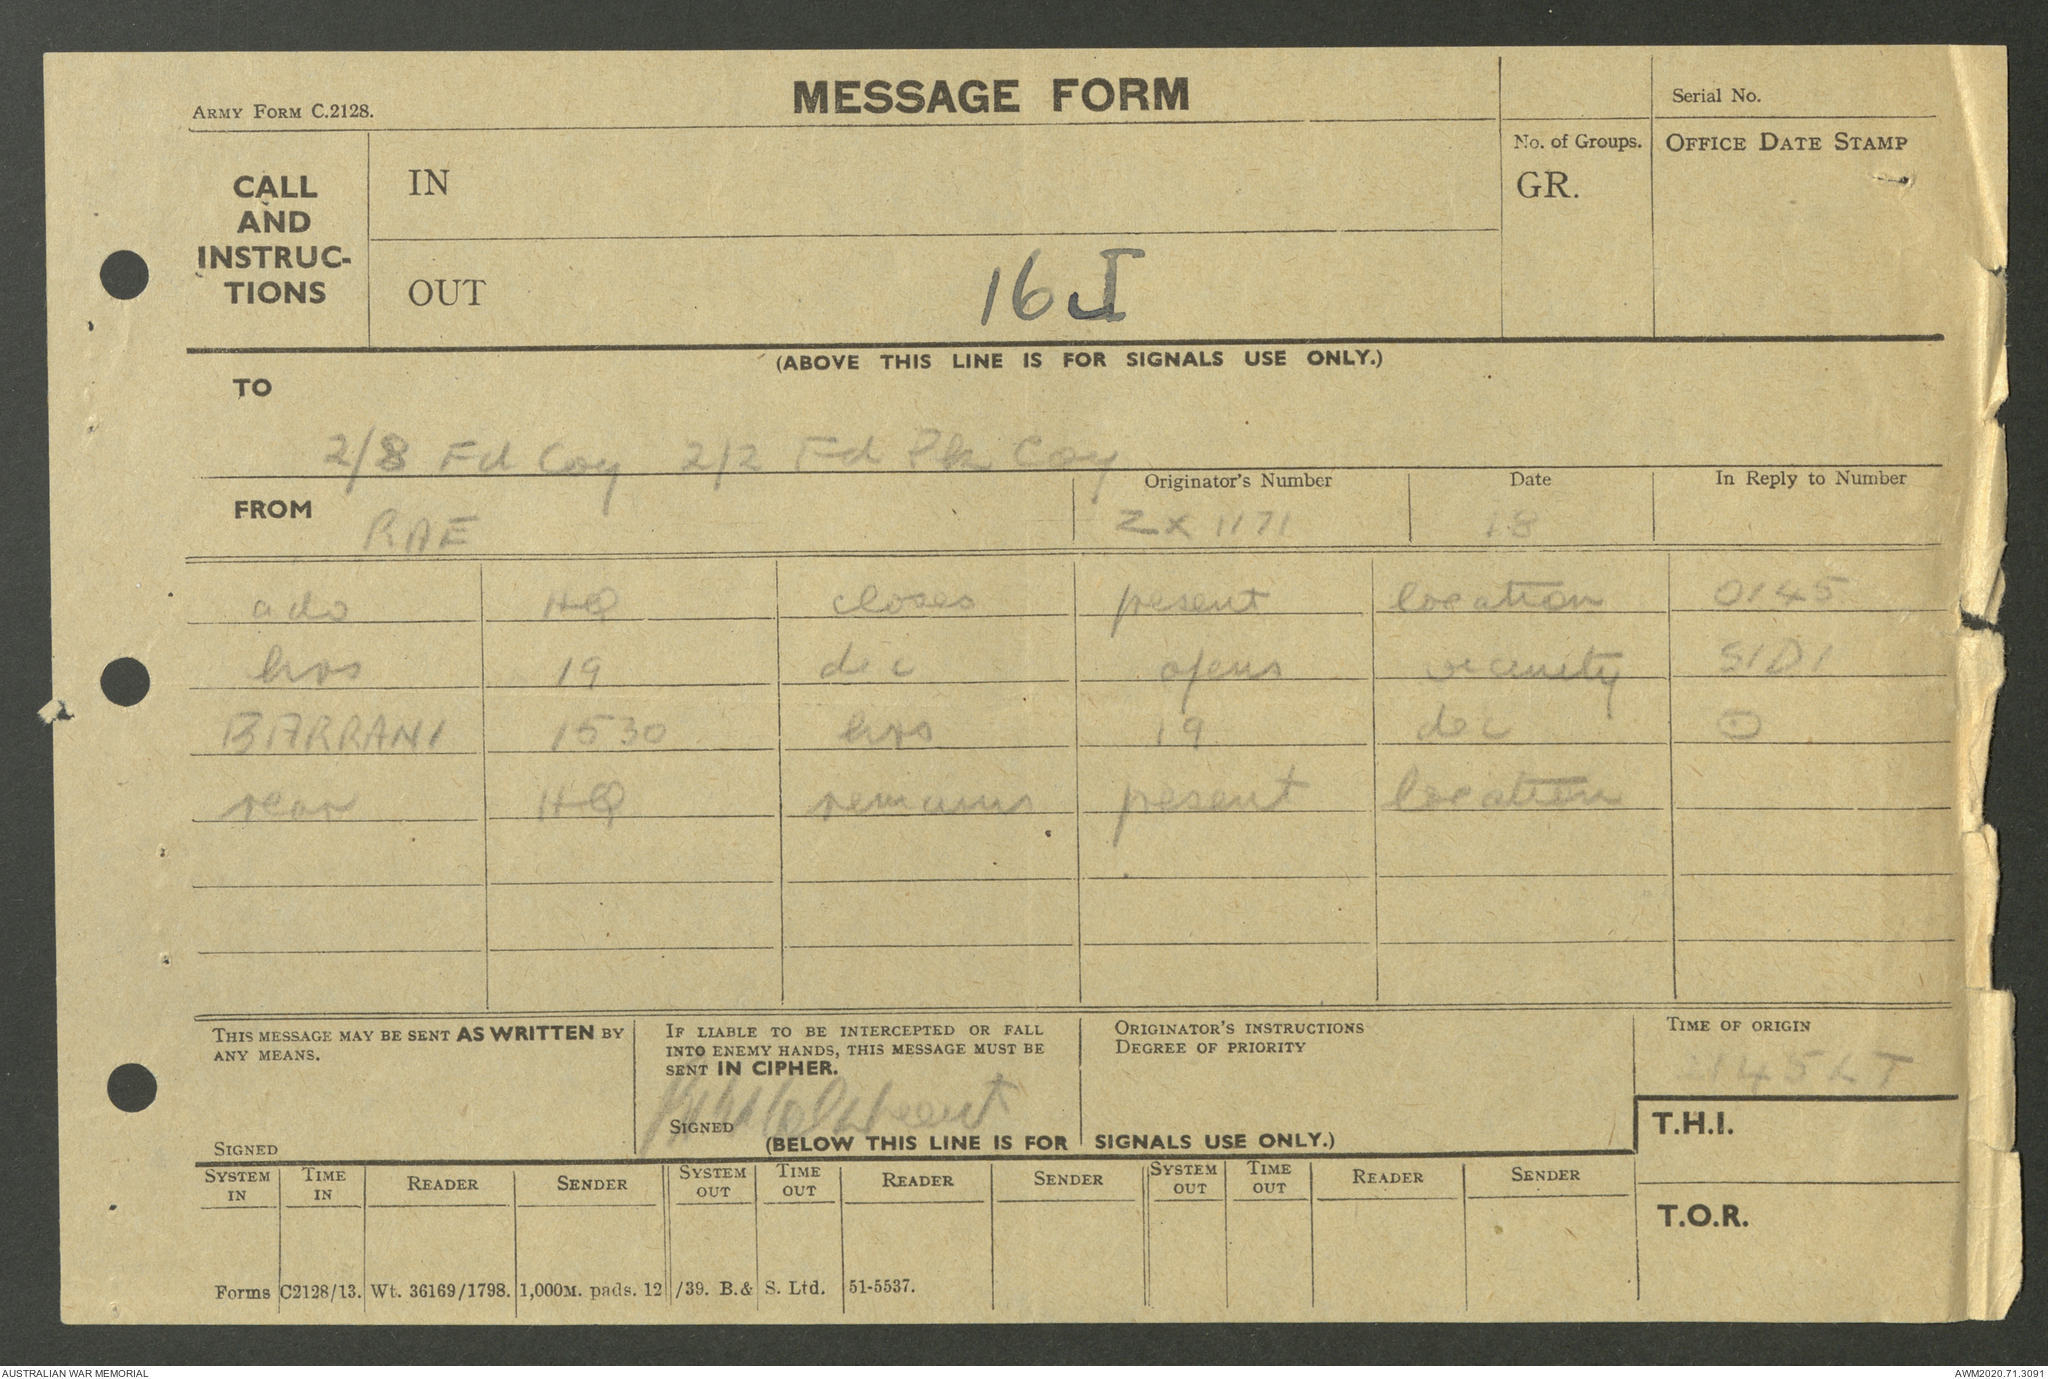 MESSAGE FORM
ARMY FORM C.2128.
Serial No.
CALL AND INSTRUC-TIONS
IN
No. of Groups.
GR.
OFFICE DATE STAMP
OUT
16 J
(ABOVE THIS LINE IS FOR SIGNALS USE ONLY.)
TO
2/8 Fd Coy 2/2 Fd Pk Coy
FROM
RAE
Originator's Number
ZX 1171
Date
18
In Reply to Number
ado HQ closes present location 0145
hrs 19 dec opens vicinity SIDI
BARRANI 1530 hrs 19 dec O
rear HQ remains present location
THIS MESSAGE MAY BE SENT AS WRITTEN BY
ANY MEANS.
SIGNED
IF LIABLE TO BE INTERCEPTED OR FALL
INTO ENEMY HANDS, THIS MESSAGE MUST BE
SENT IN CIPHER.
SIGNED
ORIGINATOR'S INSTRUCTIONS
DEGREE OF PRIORITY
TIME OF ORIGIN
(BELOW THIS LINE IS FOR SIGNALS USE ONLY.)
T.H.I.
T.O.R.
SYSTEM IN TIME IN READER SENDER SYSTEM OUT TIME OUT READER SENDER SYSTEM OUT TIME OUT READER SENDER
Forms C2128/13. Wt. 36169/1798. 1,000M. pads. 12/39. B.& S. Ltd. 51-5537.
AUSTRALIAN WAR MEMORIAL
AWM2020.71.3091